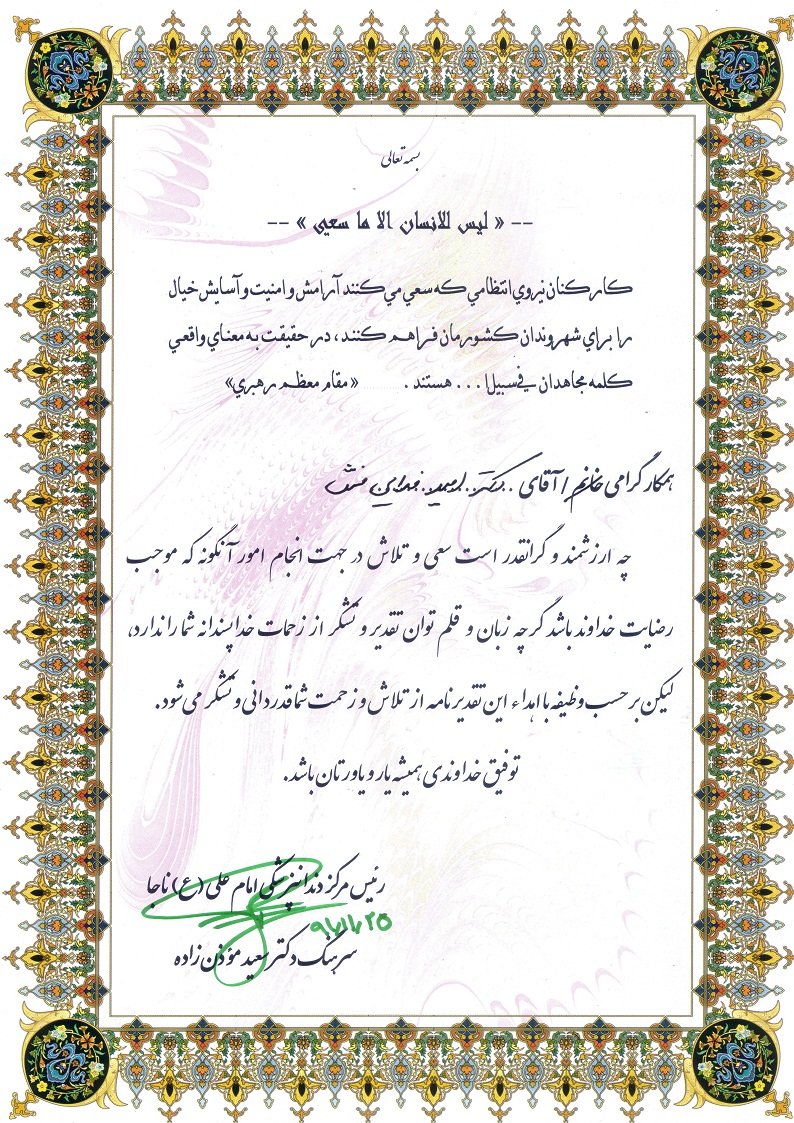 بسمه تعالی
-- « ليس للانسان الا ما سعی » --
کارکنان نيروي انتظامي که سعي مي کنند آرامش و امنيت و آسايش خيال
را براي شهروندان کشورمان فراهم کنند، در حقيقت به معناي واقعي
کلمه مجاهدان في سبيل ا... هستند. «مقام معظم رهبري»
همکار گرامی خانم / آقای دکتر امید خدایی منش
چه ارزشمند و گرانقدر است سعی و تلاش در جهت انجام امور آنگونه که موجب
رضایت خداوند باشد گرچه زبان و قلم توان تقدیر و تشکر از زحمات خداپسندانه شما را ندارد،
لیکن بر حسب وظیفه با اهداء این تقدیرنامه از تلاش و زحمت شما قدردانی و تشکر می شود.
توفیق خداوندی همیشه یار و یاورتان باشد.
رئیس مرکز دندانپزشکی امام علی (ع) ناجا
سرهنگ دکتر سعید مؤذن زاده